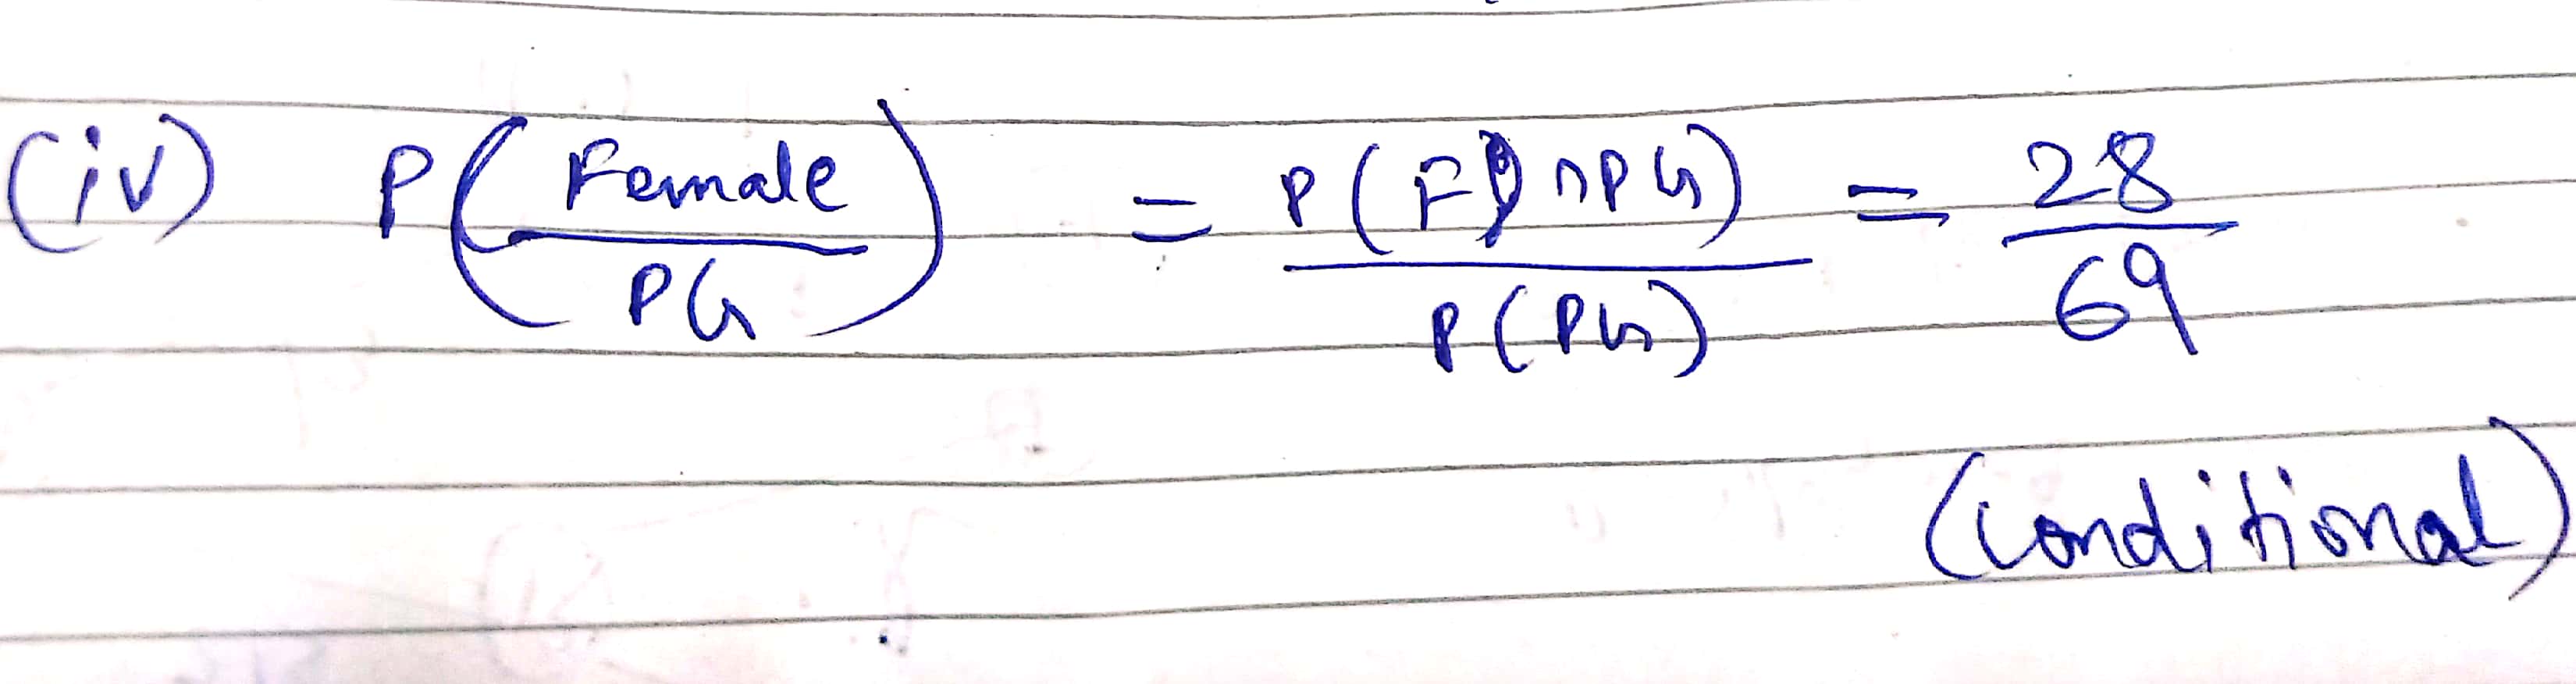 (iv) P(Female/PG) = P(F∩PG)/P(PG) = 28/69
(conditional)